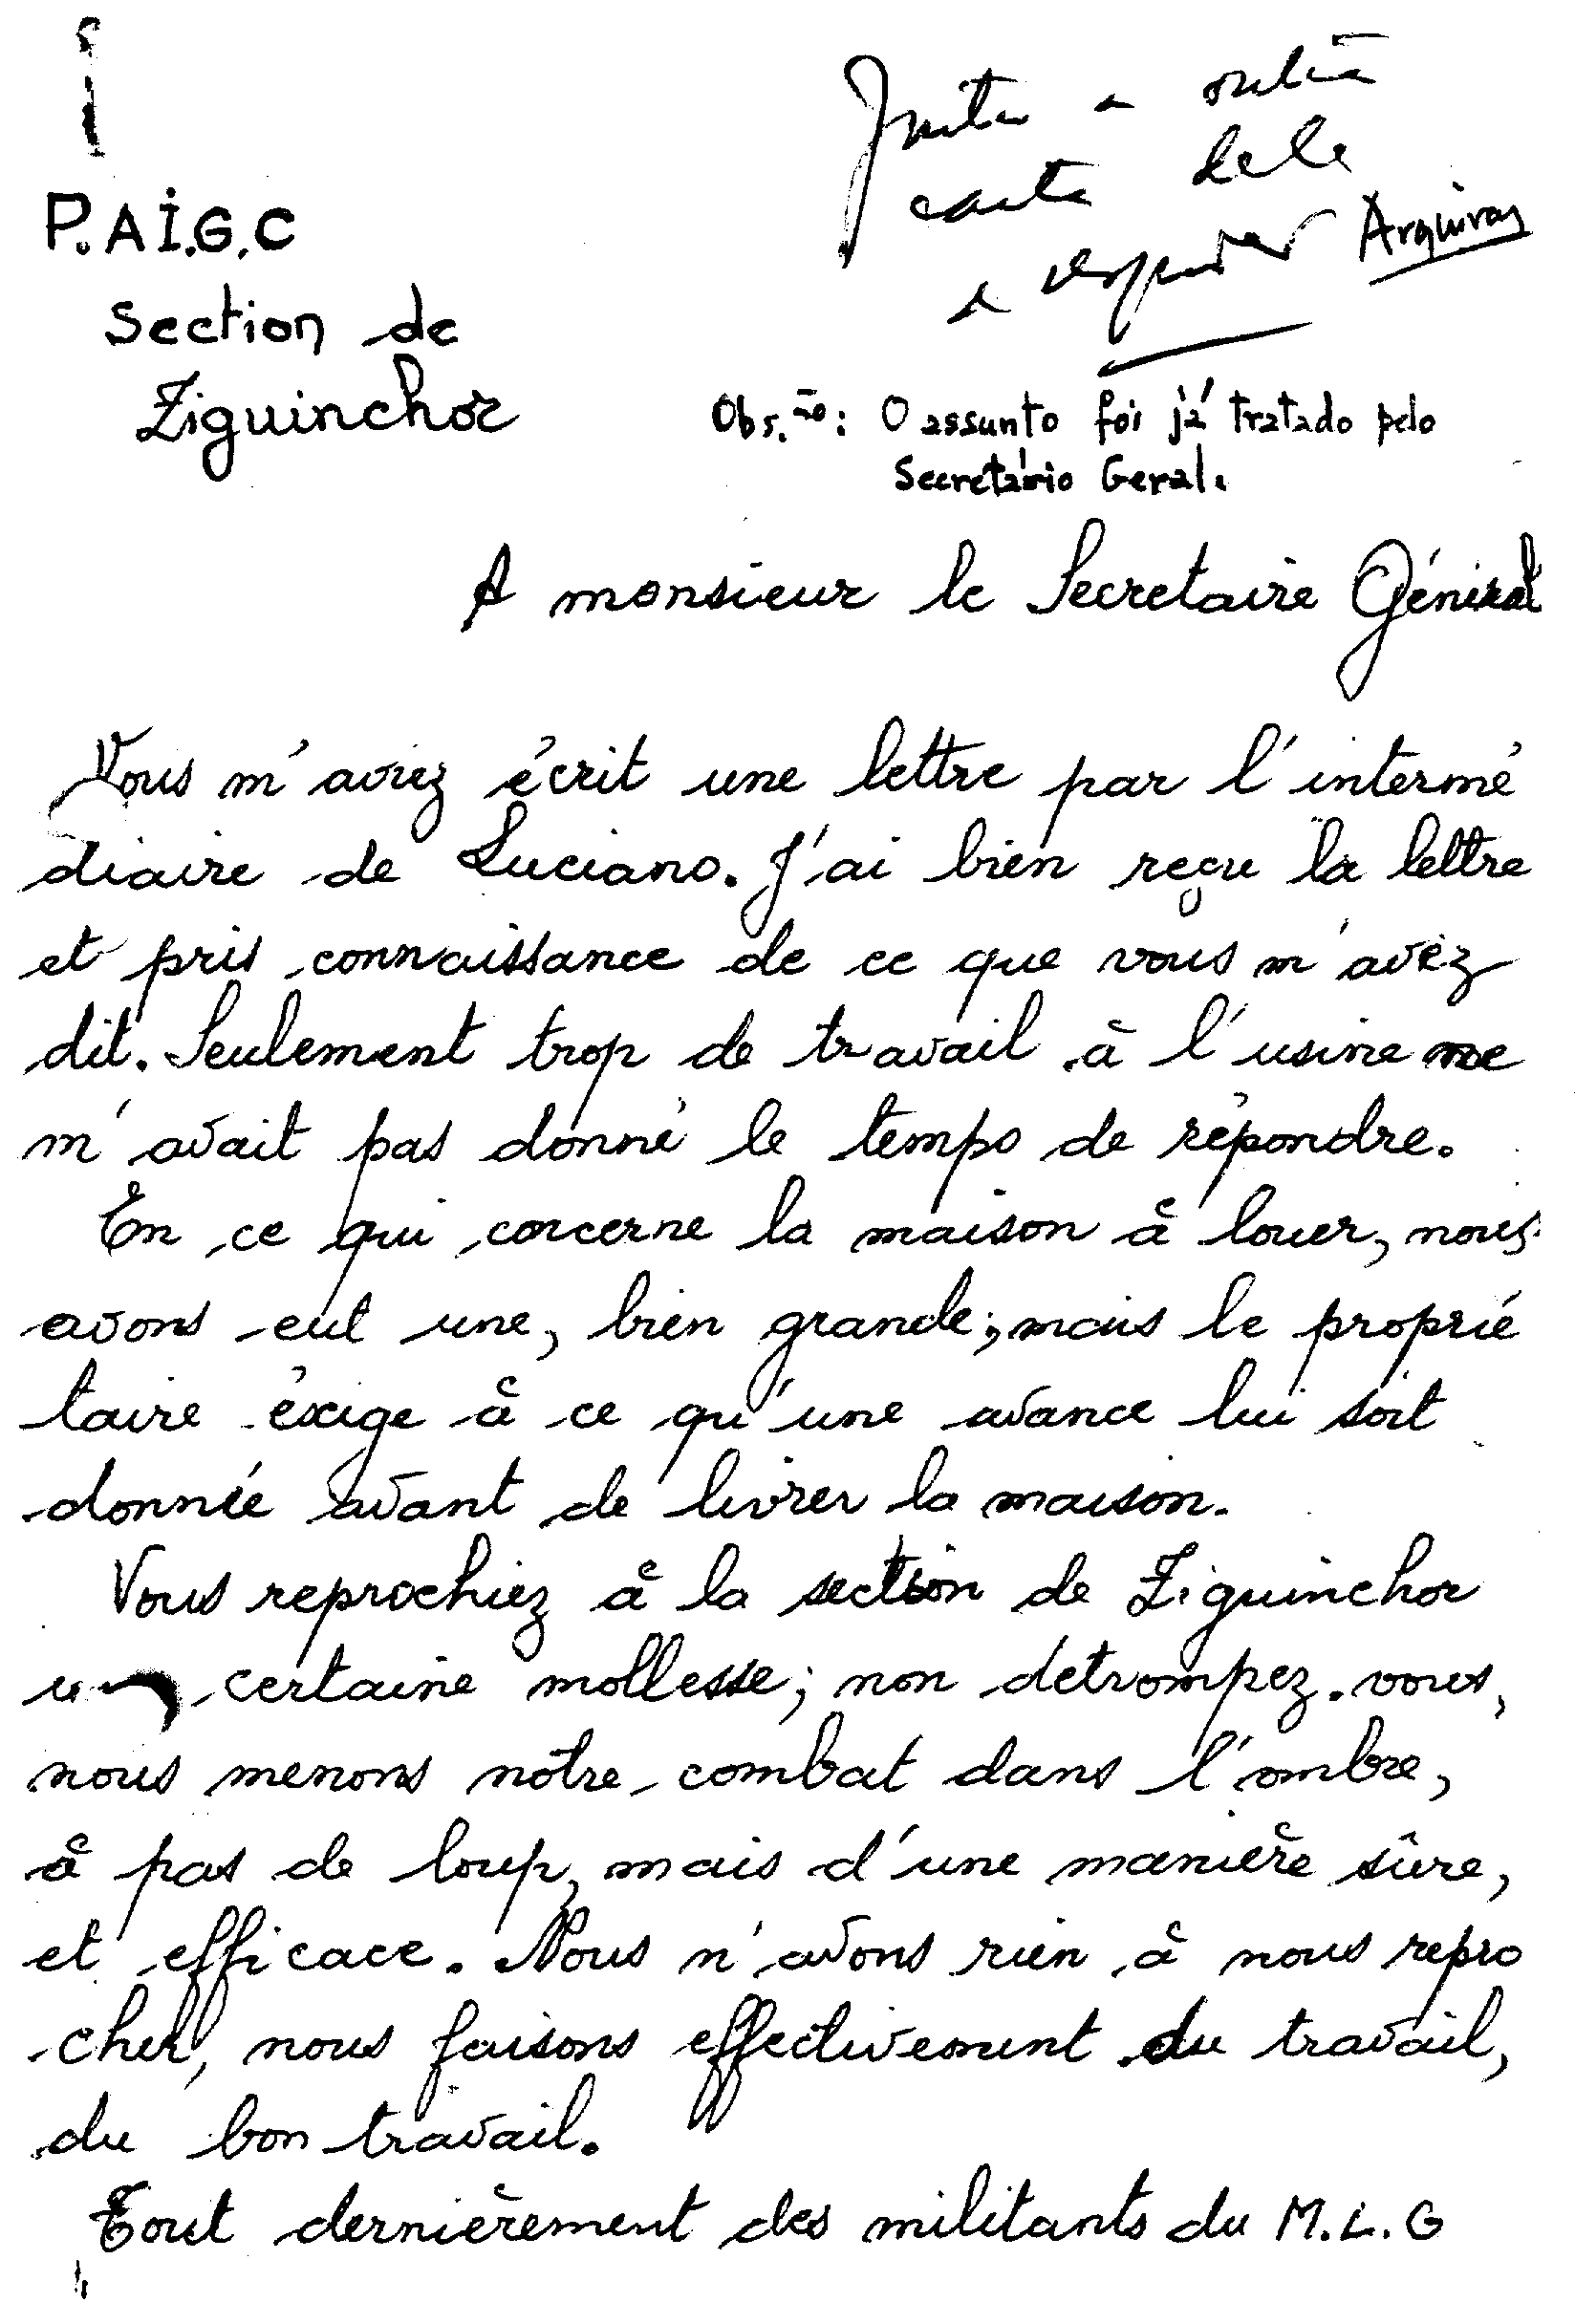 P.A.I.G.C
Section de
Ziguinchor
Junta a outra
carta dele
a responder
Arquivar
Obs.ão: O assunto foi já tratado pelo
Secretário Geral.
A monsieur le Secretaire Général
Vous m'aviez écrit une lettre par l'intermé
diaire de Luciano. J'ai bien reçu la lettre
et pris connaissance de ce que vous m'avez
dit. Seulement trop de travail à l'usine ne
m'avait pas donné le temps de répondre.
En ce qui concerne la maison à louer, nous
avons eut une, bien grande; mais le proprié
taire éxige à ce qu'une avance lui soit
donnée avant de livrer la maison.
Vous reprochiez à la section de Ziguinchor
certaine mollesse; non detrompez-vous,
nous menons nôtre combat dans l'ombre,
à pas de loup, mais d'une manière sûre,
et efficace. Nous n'avons rien à nous repro
cher, nous faisons effectivement du travail,
du bon travail.
Tout dernièrement des militants du M.L.G